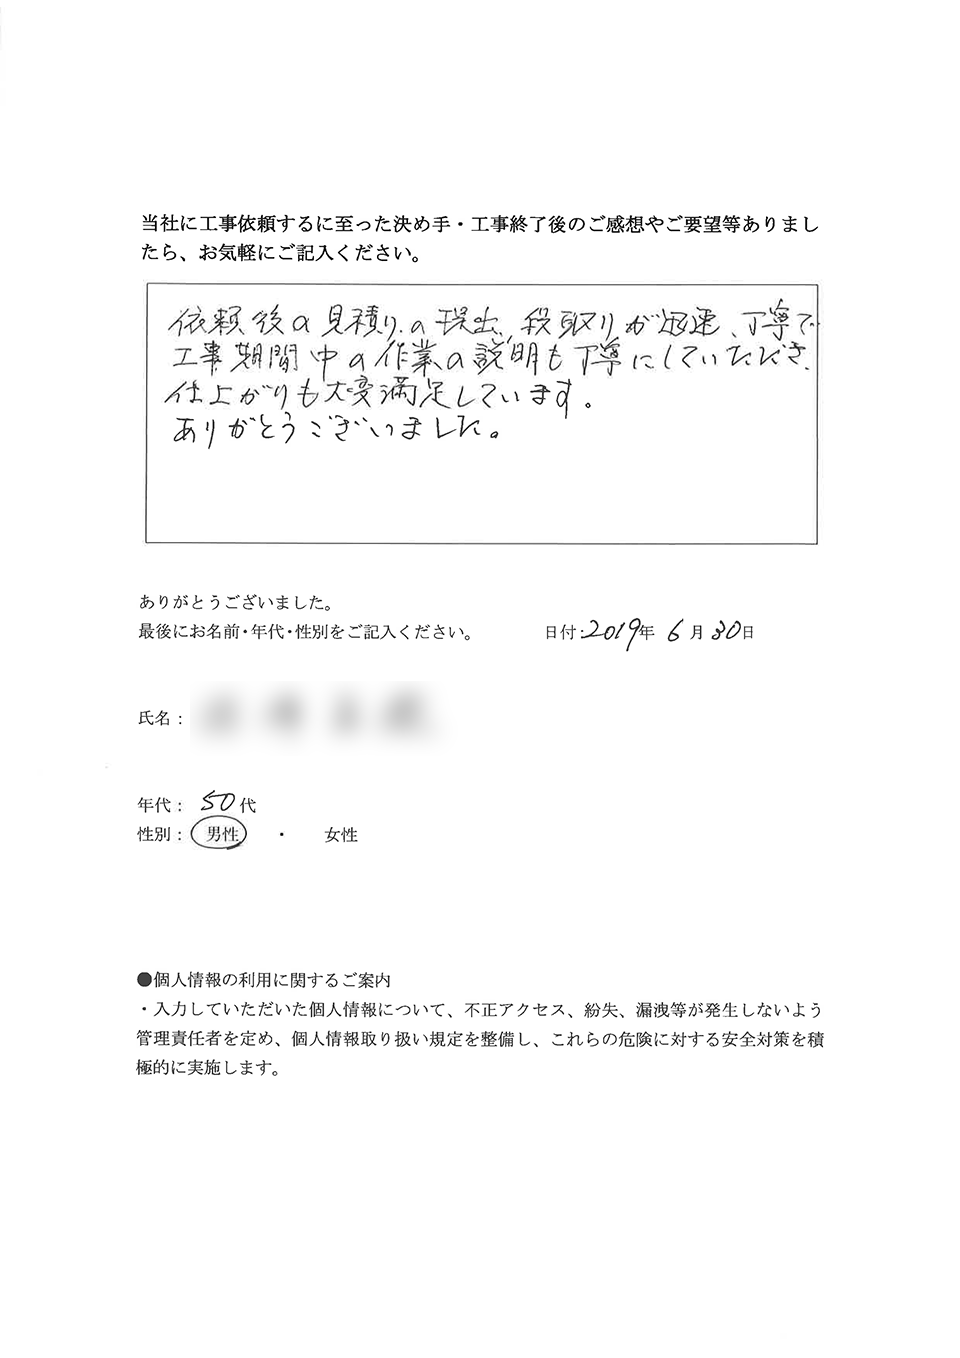 当社に工事依頼するに至った決め手・工事終了後のご感想やご要望等ありまし
たら、お気軽にご記入ください。
依頼後の見積りの提出、段取りが迅速、丁寧で
工事期間中の作業の説明も丁寧にしていただき、
仕上がりも大変満足しています。
ありがとうございました。
ありがとうございました。
最後にお名前・年代・性別をご記入ください。 日付:2019年 6月30日
氏名：
年代： 50代
性別： 男性 ・ 女性
●個人情報の利用に関するご案内
・入力していただいた個人情報について、不正アクセス、紛失、漏洩等が発生しないよう
管理責任者を定め、個人情報取り扱い規定を整備し、これらの危険に対する安全対策を積
極的に実施します。